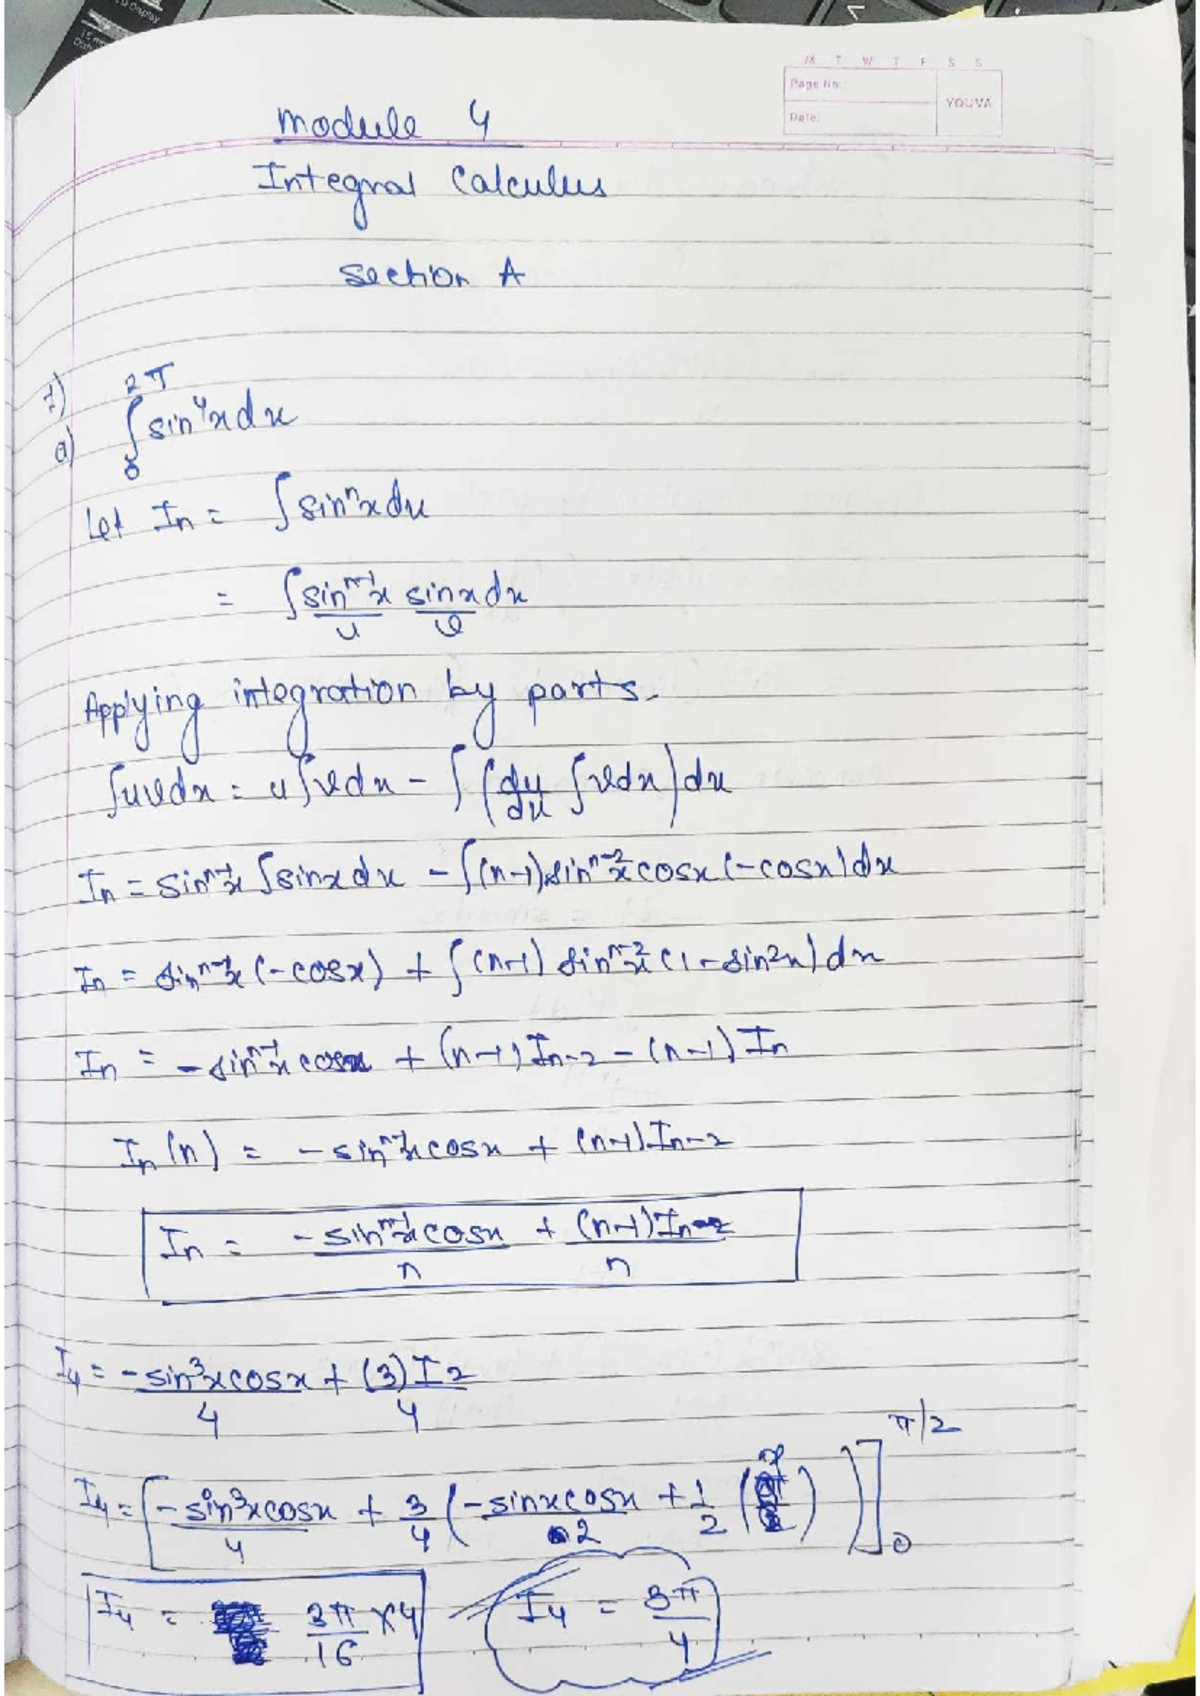 M T W T F S S
Page No.:
YOUVA
Date:
Module 4
Integral Calculus
section A
1)
a) ∫₀^2π sin⁴x dx
Let In = ∫ sinⁿx dx
= ∫ sinⁿ⁻¹x sinx dx
u v
Applying integration by parts.
∫uvdx = u∫vdx - ∫(du/dx ∫vdx)dx
In = sinⁿ⁻¹x ∫sinx dx - ∫(n-1)sinⁿ⁻²x cosx (-cosx)dx
In = sinⁿ⁻¹x (-cosx) + ∫(n-1) sinⁿ⁻²x (1-sin²x)dx
In = -sinⁿ⁻¹x cosx + (n-1)In-2 - (n-1)In
In(n) = -sinⁿ⁻¹x cosx + (n-1)In-2
In = -sinⁿ⁻¹x cosx/n + (n-1)In-2/n
I4 = -sin³x cosx/4 + (3)I2/4
I4 = [-sin³x cosx/4 + 3/4 (-sinx cosx/2 + 1/2 (x))]₀^π/2
I4 = 3π/16 x4
I4 = 3π/4